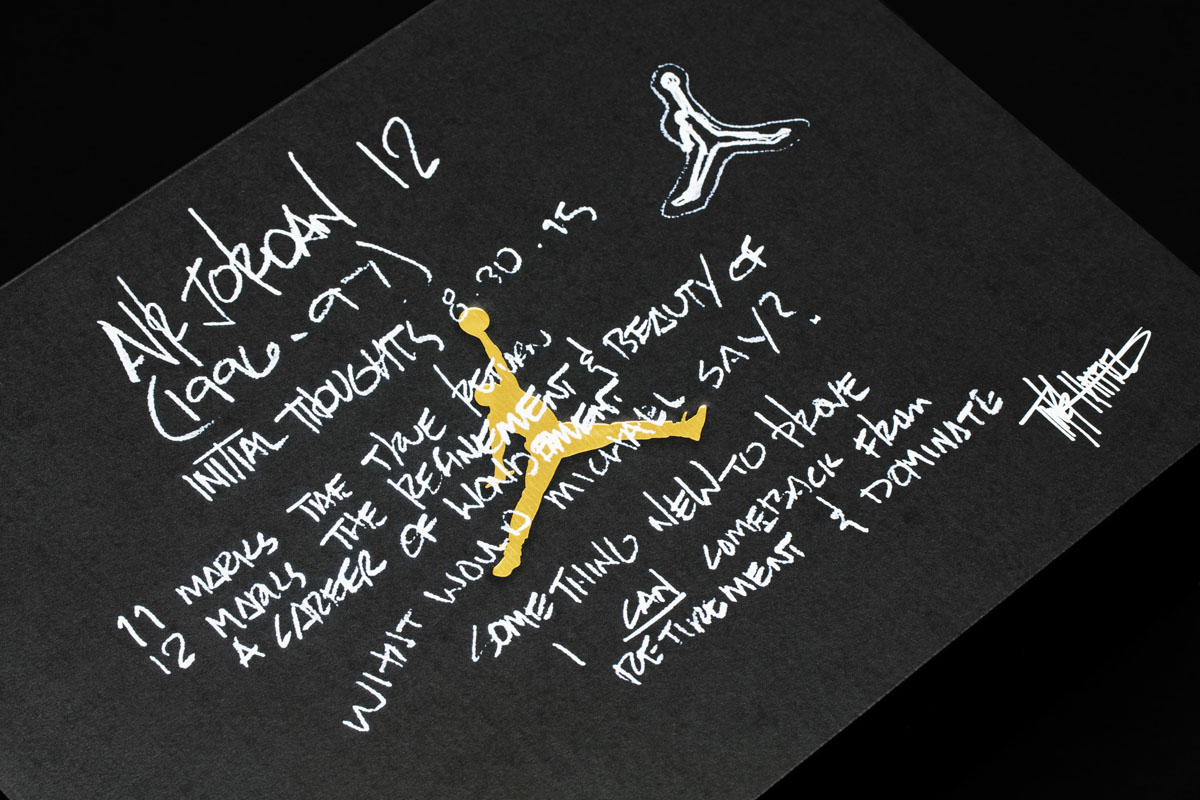 AIR JORDAN 12
(1996-97)
INITIAL THOUGHTS 8.30.95
11 MARKS THE TRUE RETURN
12 MARKS THE REFINEMENT & BEAUTY OF
A CAREER OF WONDERMENT.
WHAT WOULD MICHAEL SAY?.
SOMETHING NEW TO PROVE
I CAN COMEBACK FROM
RETIREMENT & DOMINATE